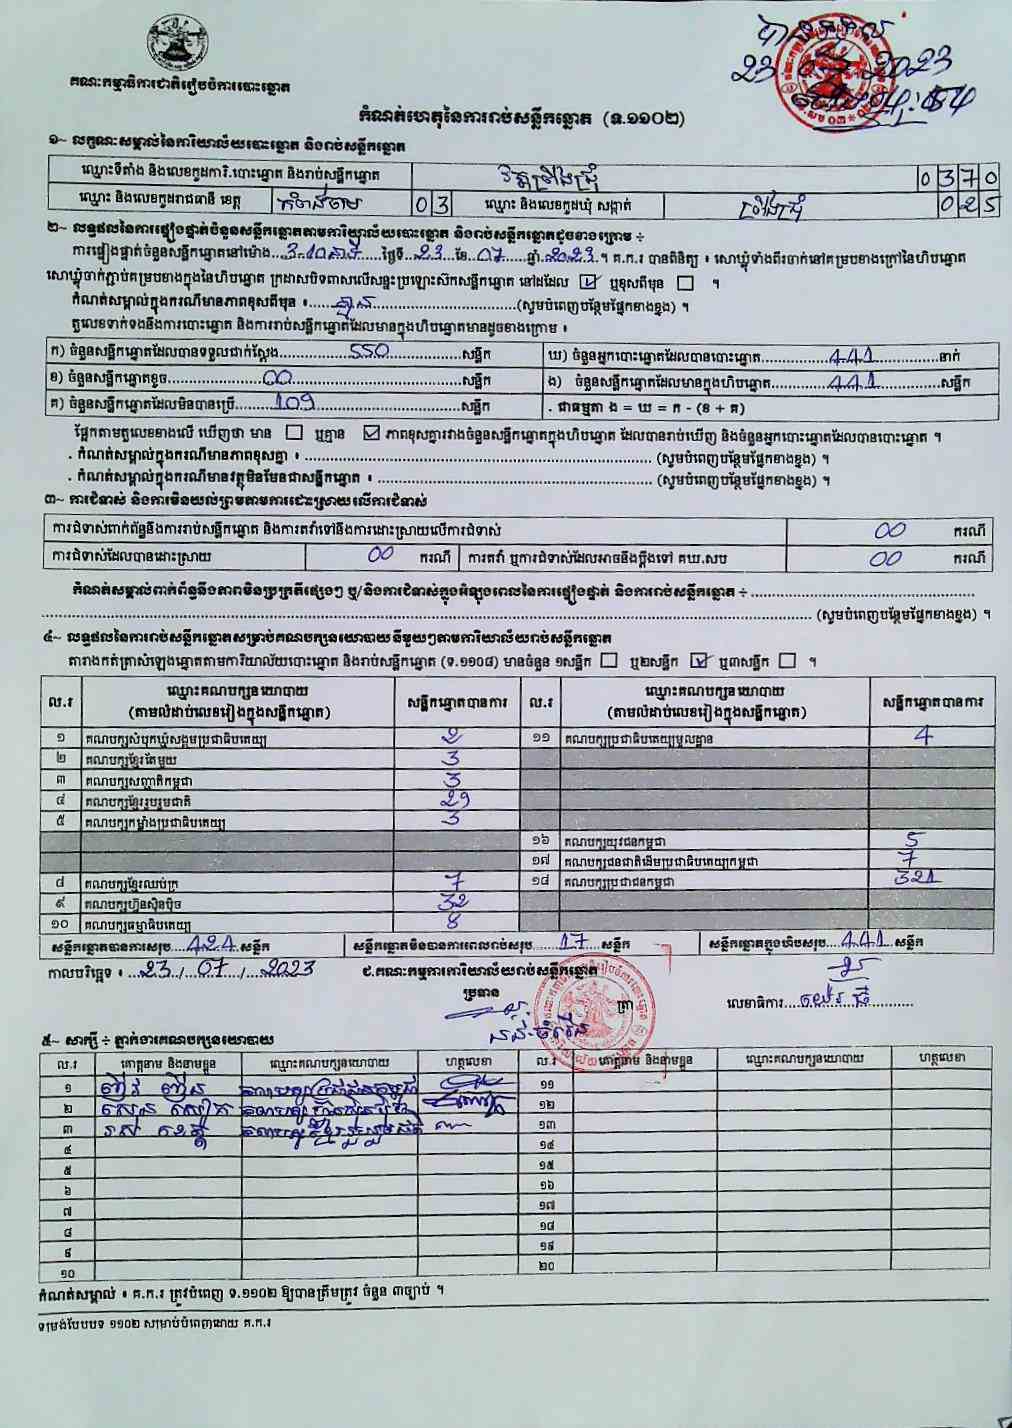 គណៈកម្មាធិការជាតិរៀបចំការបោះឆ្នោត
23 2023
កំណត់ហេតុនៃការរាប់សន្លឹកឆ្នោត (ទ.១១០២)
១~ លក្ខណៈសម្គាល់នៃការិយាល័យបោះឆ្នោត និងរាប់សន្លឹកឆ្នោត
ឈ្មោះទីតាំង និងលេខកូដការិ.បោះឆ្នោត និងរាប់សន្លឹកឆ្នោត វត្តព្រីងជ្រុំ 0370
ឈ្មោះ និងលេខកូដរាជធានី ខេត្ត កំពង់ចាម 03 ឈ្មោះ និងលេខកូដឃុំ សង្កាត់ ព្រីងជ្រុំ 025
២~ លទ្ធផលនៃការផ្ទៀងផ្ទាត់ចំនួនសន្លឹកឆ្នោតតាមការិយាល័យបោះឆ្នោត និងរាប់សន្លឹកឆ្នោតដូចខាងក្រោម ÷
ការផ្ទៀងផ្ទាត់ចំនួនសន្លឹកឆ្នោតនៅម៉ោង....3.10នាទី.....ថ្ងៃទី...23...ខែ...07....ឆ្នាំ..2023..។ គ.ក.រ បានពិនិត្យ ៖ សោឃ្លុំទាំងពីរចាក់នៅគម្របខាងក្រៅនៃហិបឆ្នោត
សោឃ្លុំចាក់ភ្ជាប់គម្របខាងក្នុងនៃហិបឆ្នោត ក្រដាសបិទពាសលើសន្ទះប្រឡោះសិកសន្លឹកឆ្នោត នៅដដែល ☑ ឬខុសពីមុន ☐ ។
កំណត់សម្គាល់ក្នុងករណីមានភាពខុសពីមុន ៖......គ្មាន......(សូមបំពេញបន្ថែមផ្នែកខាងខ្នង) ។
តួលេខទាក់ទងនឹងការបោះឆ្នោត និងការរាប់សន្លឹកឆ្នោតដែលមានក្នុងហិបឆ្នោតមានដូចខាងក្រោម ៖
ក) ចំនួនសន្លឹកឆ្នោតដែលបានទទួលជាក់ស្តែង......550......សន្លឹក ឃ) ចំនួនអ្នកបោះឆ្នោតដែលបានបោះឆ្នោត......441......នាក់
ខ) ចំនួនសន្លឹកឆ្នោតខូច......00......សន្លឹក ង) ចំនួនសន្លឹកឆ្នោតដែលមានក្នុងហិបឆ្នោត......441......សន្លឹក
គ) ចំនួនសន្លឹកឆ្នោតដែលមិនបានប្រើ......109......សន្លឹក . ជាធម្មតា ង = ឃ = ក - (ខ + គ)
ផ្អែកតាមតួលេខខាងលើ ឃើញថា មាន ☐ ឬគ្មាន ☑ ភាពខុសគ្នារវាងចំនួនសន្លឹកឆ្នោតក្នុងហិបឆ្នោត ដែលបានរាប់ឃើញ និងចំនួនអ្នកបោះឆ្នោតដែលបានបោះឆ្នោត ។
. កំណត់សម្គាល់ក្នុងករណីមានភាពខុសគ្នា ៖ ...... (សូមបំពេញបន្ថែមផ្នែកខាងខ្នង) ។
. កំណត់សម្គាល់ក្នុងករណីមានវត្ថុមិនមែនជាសន្លឹកឆ្នោត ៖ ...... (សូមបំពេញបន្ថែមផ្នែកខាងខ្នង) ។
៣~ ការជំទាស់ និងការមិនយល់ព្រមតាមការដោះស្រាយលើការជំទាស់
ការជំទាស់ពាក់ព័ន្ធនឹងការរាប់សន្លឹកឆ្នោត និងការតវ៉ាទៅនឹងការដោះស្រាយលើការជំទាស់ 00 ករណី
ការជំទាស់ដែលបានដោះស្រាយ 00 ករណី ការតវ៉ា ឬការជំទាស់ដែលអាចនឹងប្តឹងទៅ គឃ.សប 00 ករណី
កំណត់សម្គាល់ពាក់ព័ន្ធនឹងភាពមិនប្រក្រតីផ្សេងៗ ឬ/និងការជំទាស់ក្នុងអំឡុងពេលនៃការផ្ទៀងផ្ទាត់ និងការរាប់សន្លឹកឆ្នោត ÷ ......
...... (សូមបំពេញបន្ថែមផ្នែកខាងខ្នង) ។
៤~ លទ្ធផលនៃការរាប់សន្លឹកឆ្នោតសម្រាប់គណបក្សនយោបាយនីមួយៗតាមការិយាល័យរាប់សន្លឹកឆ្នោត
តារាងកត់ត្រាសំឡេងឆ្នោតតាមការិយាល័យបោះឆ្នោត និងរាប់សន្លឹកឆ្នោត (ទ.១១០៨) មានចំនួន ១សន្លឹក ☐ ឬ២សន្លឹក ☑ ឬ៣សន្លឹក ☐ ។
ល.រ ឈ្មោះគណបក្សនយោបាយ (តាមលំដាប់លេខរៀងក្នុងសន្លឹកឆ្នោត) សន្លឹកឆ្នោតបានការ ល.រ ឈ្មោះគណបក្សនយោបាយ (តាមលំដាប់លេខរៀងក្នុងសន្លឹកឆ្នោត) សន្លឹកឆ្នោតបានការ
១ គណបក្សសំបុកឃ្មុំសង្គមប្រជាធិបតេយ្យ 2 ១១ គណបក្សប្រជាធិបតេយ្យមូលដ្ឋាន 4
២ គណបក្សខ្មែរតែមួយ 3
៣ គណបក្សសញ្ជាតិកម្ពុជា 3
៤ គណបក្សខ្មែររួបរួមជាតិ 29
៥ គណបក្សកម្លាំងប្រជាធិបតេយ្យ 3
១៦ គណបក្សយុវជនកម្ពុជា 5
១៧ គណបក្សជនជាតិដើមប្រជាធិបតេយ្យកម្ពុជា 7
៨ គណបក្សខ្មែរឈប់ក្រ 7 ១៨ គណបក្សប្រជាជនកម្ពុជា 321
៩ គណបក្សហ៊្វុនស៊ិនប៉ិច 32
១០ គណបក្សធម្មាធិបតេយ្យ 8
សន្លឹកឆ្នោតបានការសរុប....424....សន្លឹក សន្លឹកឆ្នោតមិនបានការពេលរាប់សរុប....17....សន្លឹក សន្លឹកឆ្នោតក្នុងហិបសរុប...441...សន្លឹក
កាលបរិច្ឆេទ ៖ ..23../..07../..2023 ជ.គណៈកម្មការការិយាល័យរាប់សន្លឹកឆ្នោត
ប្រធាន ត្រា លេខាធិការ......
៥~ សាក្សី ÷ ភ្នាក់ងារគណបក្សនយោបាយ
ល.រ គោត្តនាម និងនាមខ្លួន ឈ្មោះគណបក្សនយោបាយ ហត្ថលេខា ល.រ គោត្តនាម និងនាមខ្លួន ឈ្មោះគណបក្សនយោបាយ ហត្ថលេខា
១ គណបក្សប្រជាជនកម្ពុជា ១១
២ គណបក្សហ៊្វុនស៊ិនប៉ិច ១២
៣ គណបក្សខ្មែររួបរួមជាតិ ១៣
៤ ១៤
៥ ១៥
៦ ១៦
៧ ១៧
៨ ១៨
៩ ១៩
១០ ២០
កំណត់សម្គាល់ ៖ គ.ក.រ ត្រូវបំពេញ ទ.១១០២ ឱ្យបានត្រឹមត្រូវ ចំនួន ៣ច្បាប់ ។
ទម្រង់បែបបទ ១១០២ សម្រាប់បំពេញដោយ គ.ក.រ